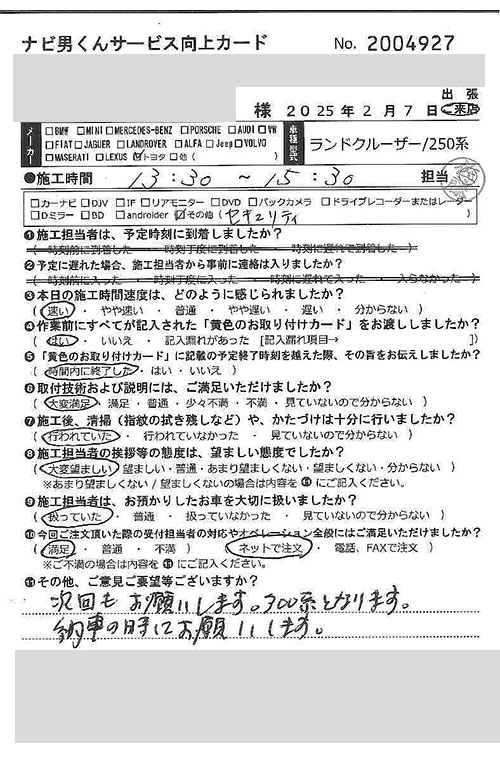 ナビ男くんサービス向上カード No. 2004927
様 2025年2月7日 出張 ご来店
メーカー □BMW □MINI □MERCEDES-BENZ □PORSCHE □AUDI □VW
□FIAT □JAGUER □LANDROVER □ALFA □Jeep □VOLVO
□MASERATI □LEXUS ☑トヨタ □他 ( )
車種型式 ランドクルーザー/250系
●施工時間 13:30 ~ 15:30 担当
□カーナビ □DJV □IF □リアモニター □DVD □バックカメラ □ドライブレコーダーまたはレーダー
□Dミラー □BD □androider ☑その他 ( セキュリティ )
❶施工担当者は、予定時刻に到着しましたか?
時刻前に到着した ・ 時刻丁度に到着した ・ 時刻に遅れて到着した
❷予定に遅れた場合、施工担当者から事前に連絡は入りましたか?
時刻前に入った ・ 時刻丁度に入った ・ 時刻に遅れて入った ・ 入らなかった
❸本日の施工時間速度は、どのように感じられましたか?
( 速い ・ やや速い ・ 普通 ・ やや遅い ・ 遅い ・ 分からない )
❹作業前にすべてが記入された「黄色のお取り付けカード」をお渡ししましたか?
( はい ・ いいえ ・ 記入漏れがあった [記入漏れ項目→ ])
❺「黄色のお取り付けカード」に記載の予定終了時刻を越えた際、その旨をお伝えしましたか?
( 時間内に終了した ・ はい ・ いいえ )
❻取付技術および説明には、ご満足いただけましたか?
( 大変満足 ・ 満足 ・ 普通 ・ 少々不満 ・ 不満 ・ 見ていないので分からない )
❼施工後、清掃（指紋の拭き残しなど）や、かたづけは十分に行いましたか?
( 行われていた ・ 行われていなかった ・ 見ていないので分からない )
❽施工担当者の挨拶等の態度は、望ましい態度でしたか?
( 大変望ましい ・ 望ましい ・ 普通 ・ あまり望ましくない ・ 望ましくない ・ 分からない )
※あまり望ましくない / 望ましくないの場合は内容を ⓫ にご記入ください。
❾施工担当者は、お預かりしたお車を大切に扱いましたか?
( 扱っていた ・ 普通 ・ 扱っていなかった ・ 見ていないので分からない )
❿今回ご注文頂いた際の受付担当者の対応やオペレーション全般にはご満足いただけましたか?
( 満足 ・ 普通 ・ 不満 ) ( ネットで注文 ・ 電話、FAXで注文 )
※ご不満の場合は内容を ⓫ にご記入ください。
⓫その他、ご意見ご要望等ございますか?
次回もお願いします。300系となります。
納車の時にお願いします。